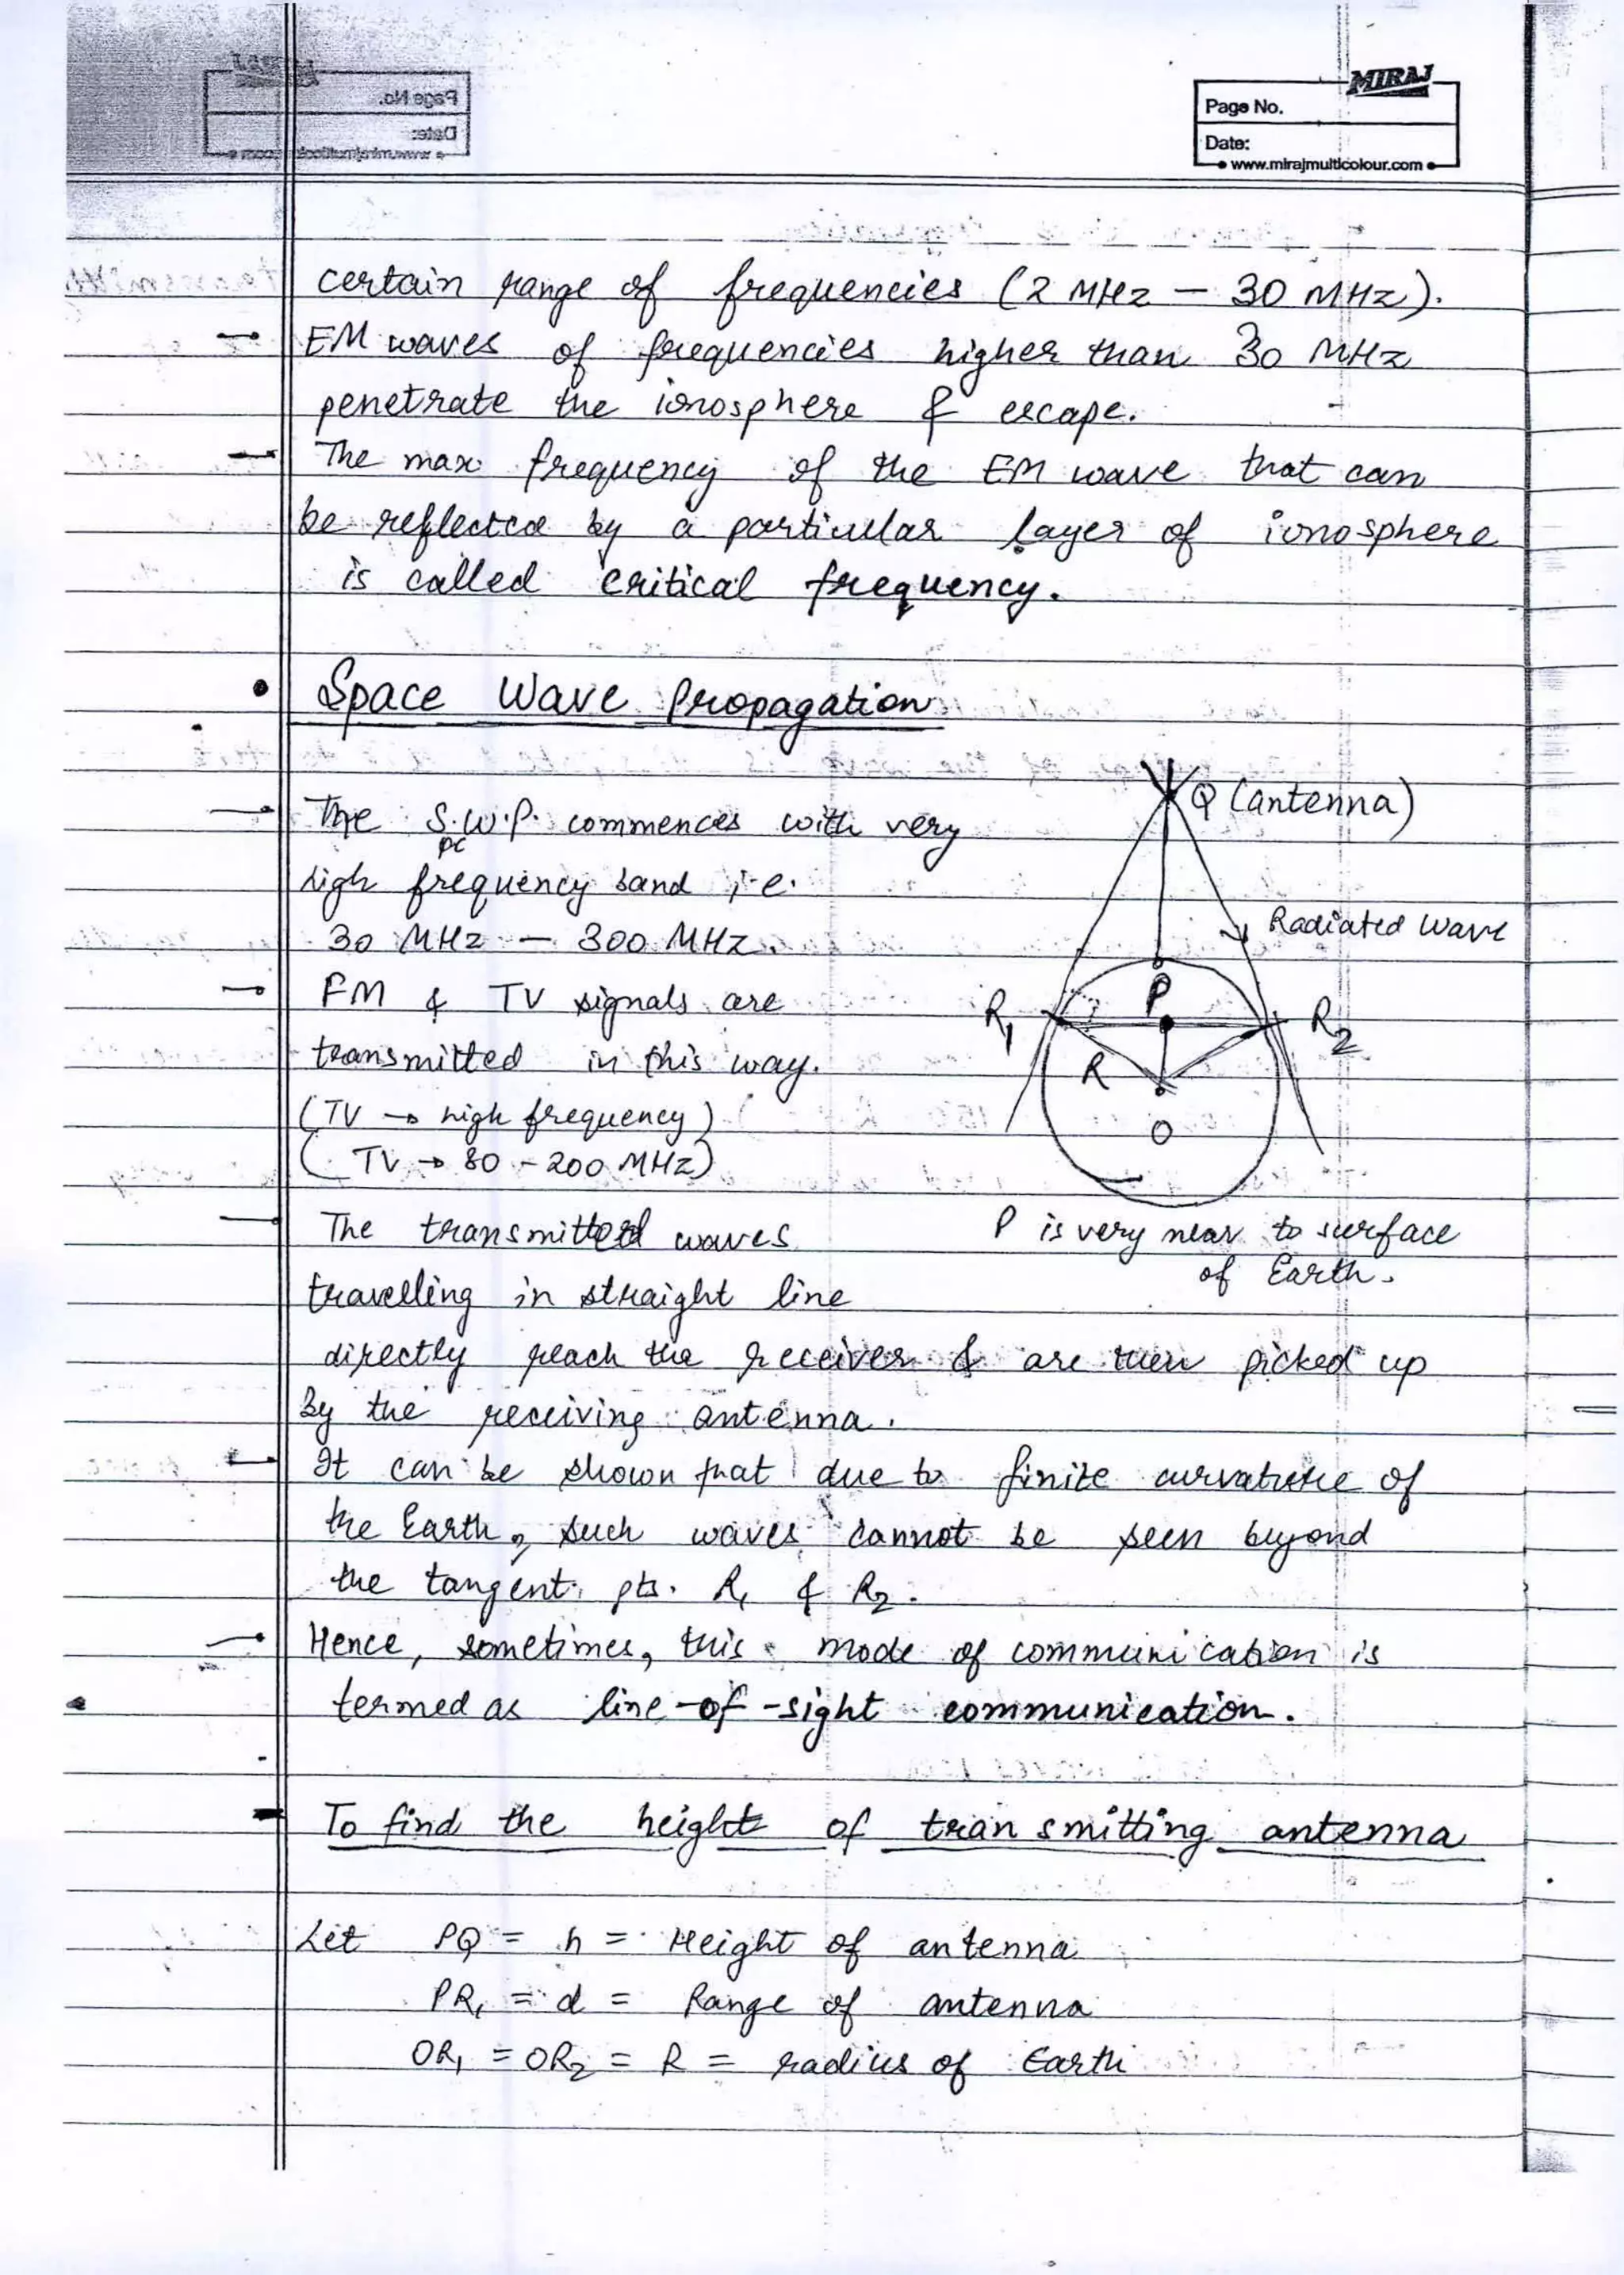 MIRAJ
Page No.
Date:
www.mirajmulticolour.com
certain range of frequencies (2 MHz — 30 MHz).
→ EM waves of frequencies higher than 30 MHz
penetrate the ionosphere & escape.
→ The max frequency of the EM wave that can
be reflected by a particular layer of ionosphere
is called critical frequency.
• Space Wave Propagation
→ The S.W.P. commences with very
high frequency band i.e.
30 MHz — 300 MHz.
→ FM & TV signals are
transmitted in this way.
(TV → high frequency)
(TV → 80 - 200 MHz)
Q (antenna)
Radiated Wave
P
R1
R2
R
O
P is very near to surface
of Earth.
→ The transmitted waves
travelling in straight line
directly reach the receiver & are then picked up
by the receiving antenna.
→ It can be shown that due to finite curvature of
the Earth, such waves cannot be seen beyond
the tangent pts. R1 & R2.
→ Hence, sometimes, this mode of communication is
termed as line-of-sight communication.
- To find the height of transmitting antenna
Let PQ = h = Height of antenna
PR1 = d = Range of antenna
OR1 = OR2 = R = radius of Earth